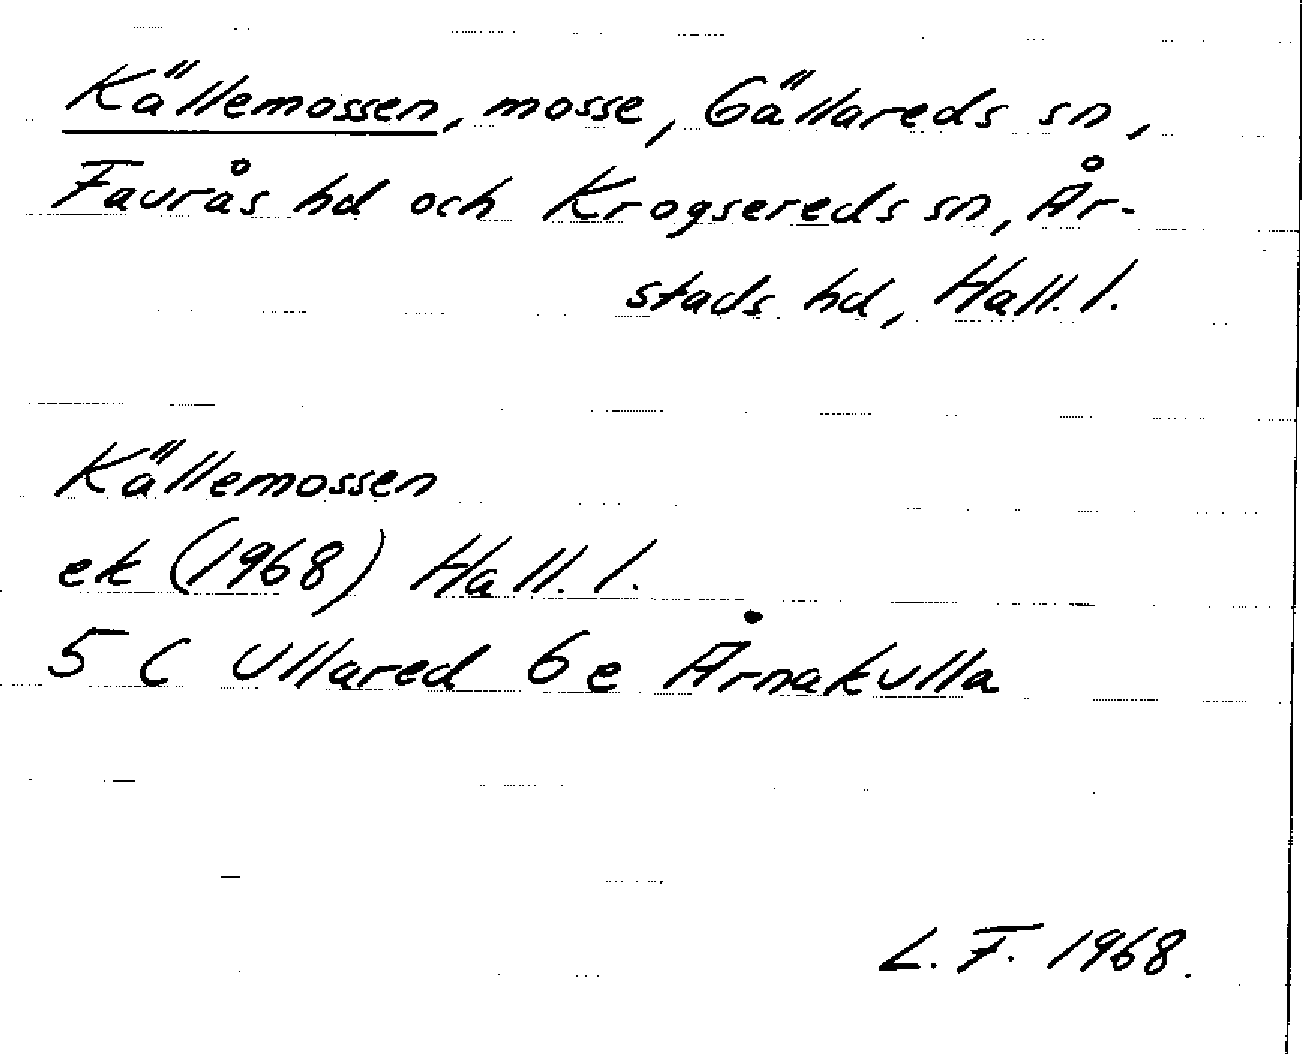 Källemossen, mosse, Gällareds sn,
Faurås hd och Krogsereds sn, År-
stads hd, Hall. l.
Källemossen
ek (1968) Hall. l.
5 C Ullared 6 e Årnakulla
L. F. 1968.